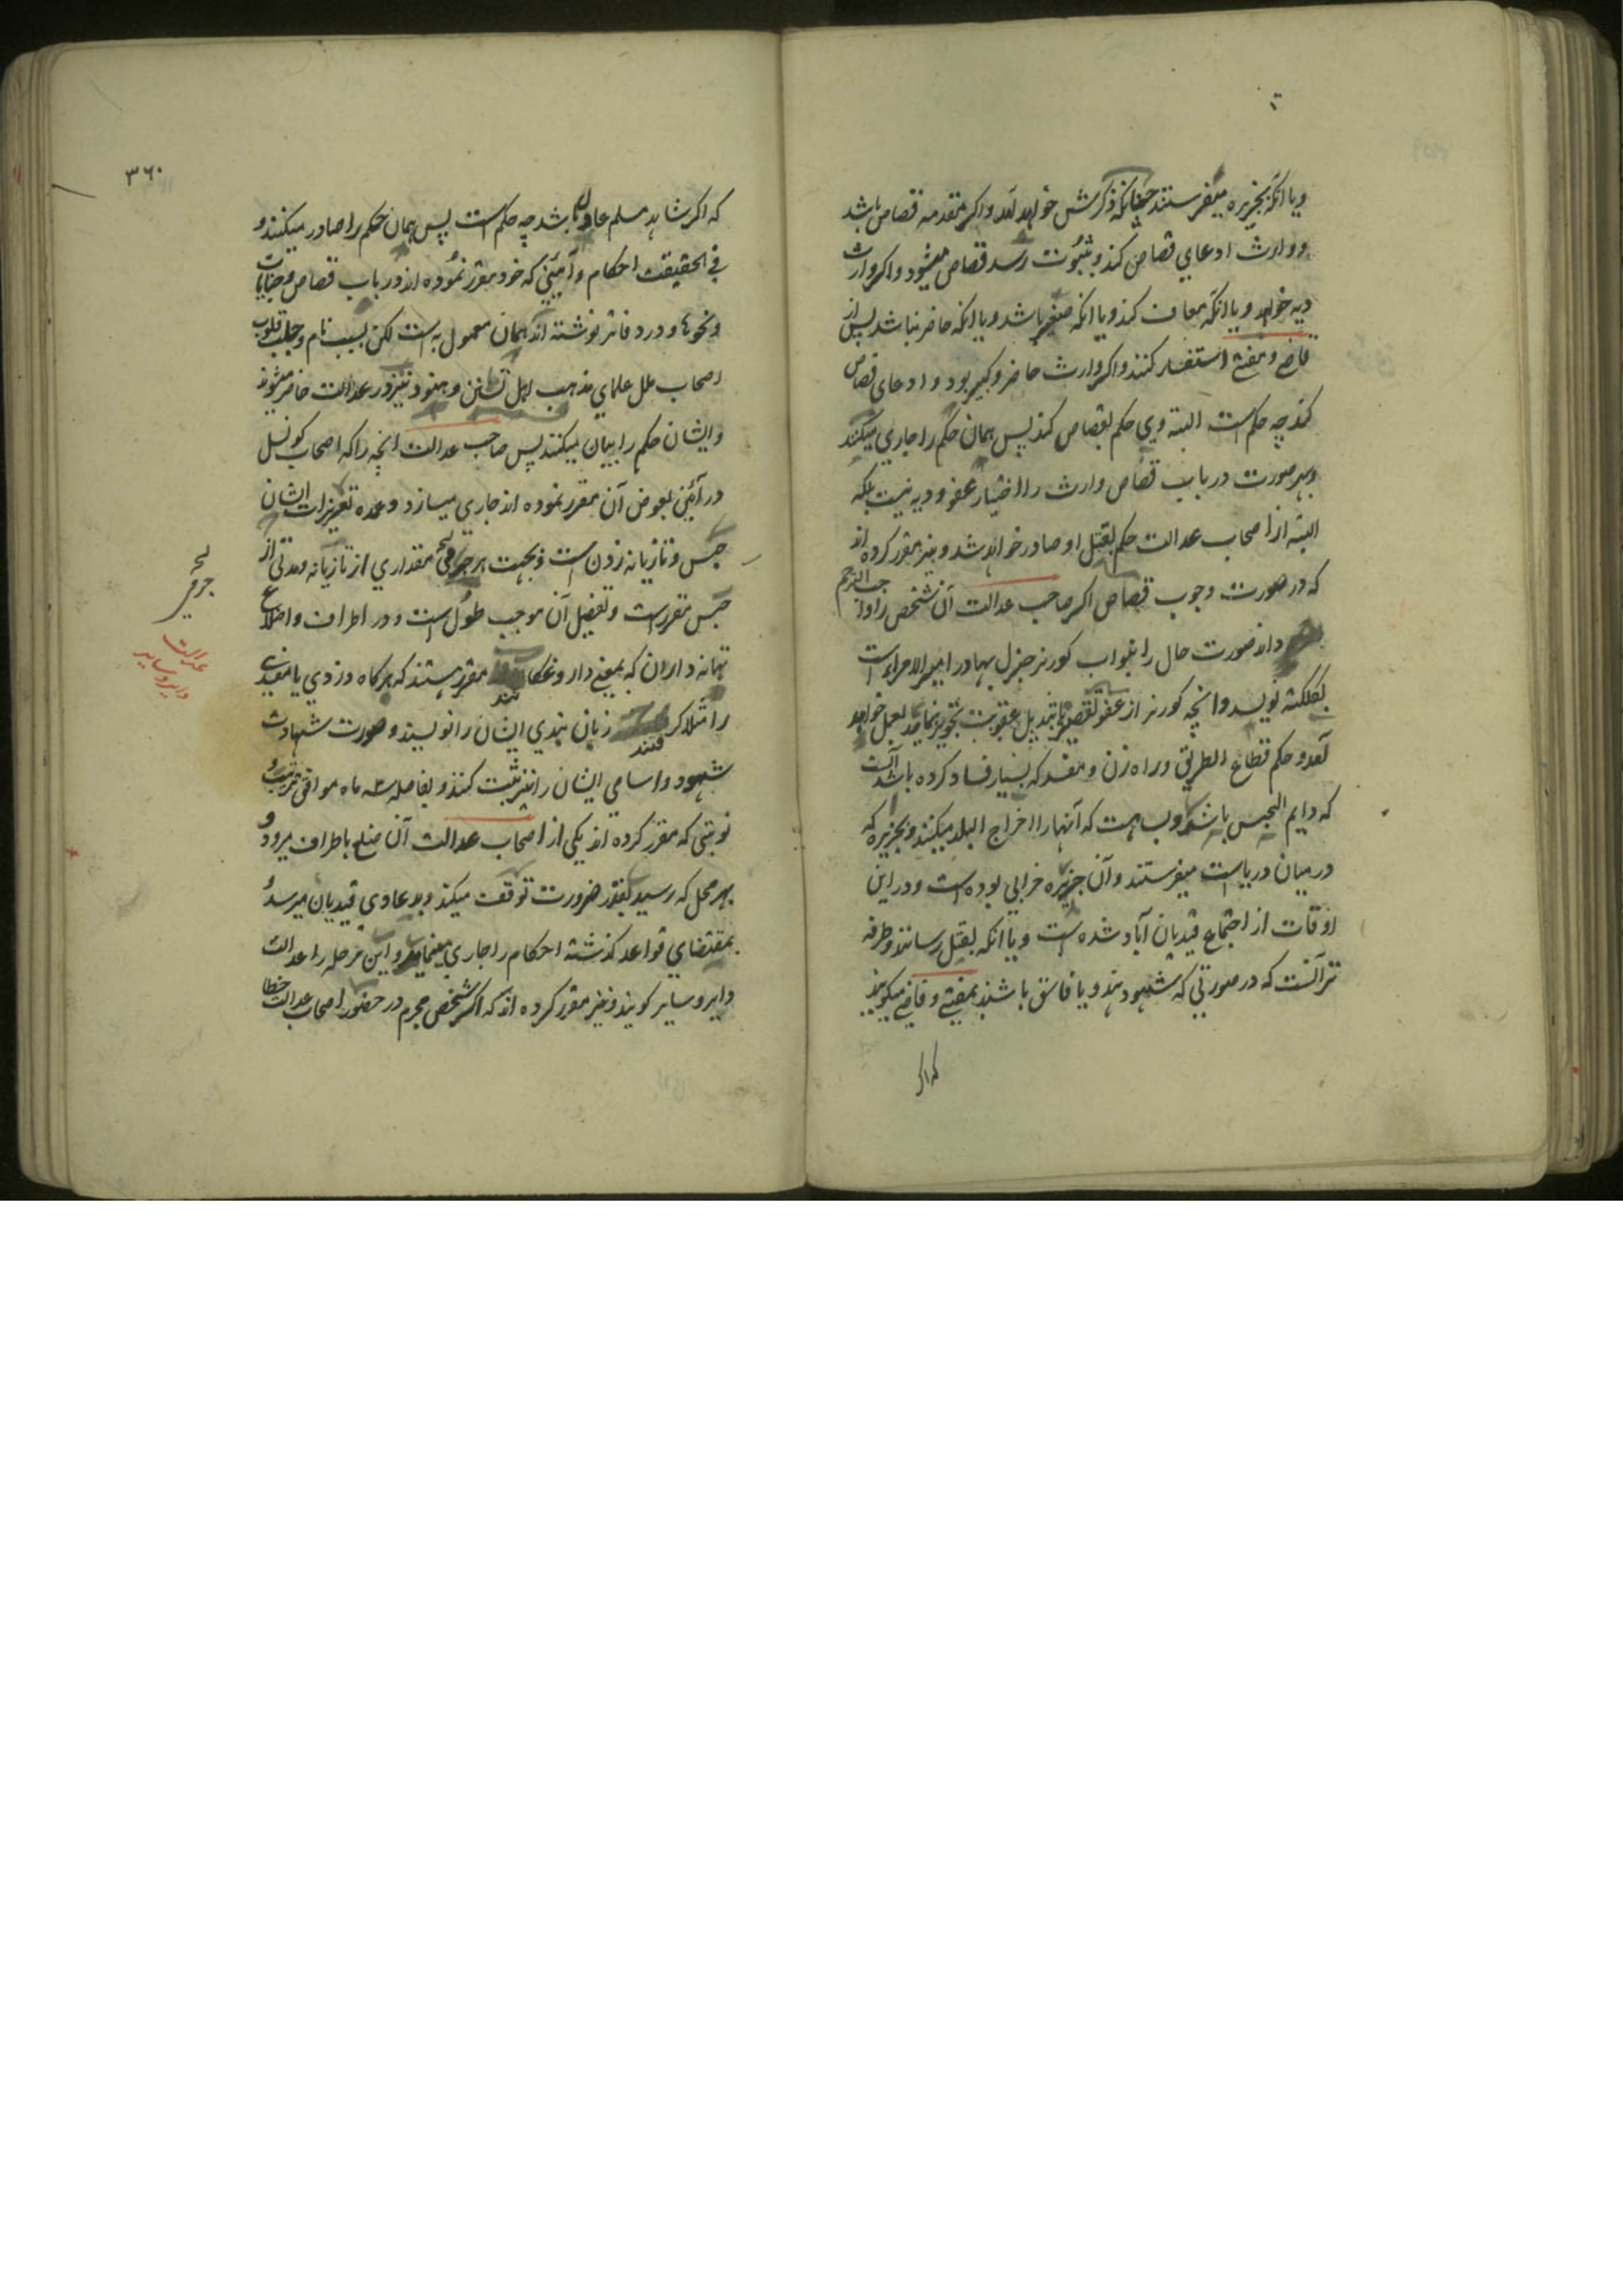 ویا آنکه بجزیره میفرستند چنانکه ذکرش خواهد آمد واکر مقدمه قصاص باشد
ووارث ادعای قصاص کند وبثبوت رسد قصاص میشود واکر وارث
دیه خواهد ویا آنکه معاف کند ویا آنکه صغیر باشد ویا آنکه حاضر نباشد پس از
قاضے ومفتے استفسار کنند واکر وارث حاضر وکبیر بود وادعای قصاص
کند چه حکم است البته وی حکم بقصاص کند پس همان حکم را جاری میکنند
وبهر صورت در باب قصاص وارث را اختیار عفو ودیه نیست بلکه
البته از اصحاب عدالت حکم بقتل او صادر خواهد شد ونیز مقرر کرده اند
که در صورت وجوب قصاص اکر صاحب عدالت آن شخص را واجب الترحم
داند صورت حال را بنواب کورنر جنرل بهادر امیر الامراء است
بکلکته نویسد وانچه کورنر از عفو تقصیر یا تبدیل عقوبت تجویز نماید بعمل خواهد
آمد وحکم قطاع الطریق وراه زن ومفسد که بسیار فساد کرده باشد آنست
که دایم الحبس باشد وبسا هست که آنها را اخراج البلد میکنند وبجزیره که
در میان دریاست میفرستند وآن جزیره خرابی بوده است ودر این
اوقات از اجتماع قیدیان آباد شده است ویا آنکه بقتل رسانند وطرفه
تر آنست که در صورتی که شهود هندو یا فاسق باشند بمفتے وقاضے میکویند
که اکر
۳۶۰
که اکر شاهد مسلم عادل باشد چه حکم است پس همان حکم را صادر میکنند و
فی الحقیقت احکام وآئینی که خود مقرر نموده اند در باب قصاص وجنایات
ونحوها ودر دفاتر نوشته اند همان معمول به است لکن بسبب نام وجلب قلوب
اصحاب ملل علمای مذهب اهل تسنن وهنود نیز در عدالت حاضر میشوند
وایشان حکم را بیان میکنند پس صاحب عدالت آنچه را که اصحاب کونسل
در آئین بعوض آن مقرر نموده اند جاری میسازد وعمده تعزیرات ایشان
حبس وتازیانه زدن است وبجهت هر جرمی مقداری از تازیانه ومدتی از
حبس مقرر است وتفصیل آن موجب طول است ودر اطراف واضلاع
تهانه داران که بمعنے داروغکان مقرر هستند که هرکاه دزدی یا مفسدی
را مثلا کرفتند زبان بندی ایشان را نویسند وصورت شهادت
شهود واسامی ایشان را نیز ثبت کنند وبفاصله سه ماه موافق ترتیب و
نوبتی که مقرر کرده اند یکی از اصحاب عدالت آن ضلع باطراف میرود و
بهر محل که رسید بقدر ضرورت توقف میکند وبدعاوی قیدیان میرسد و
بمقتضای قواعد کذشته احکام را جاری مینماید واین مرحله را عدالت
دایر وسایر کویند ونیز مقرر کرده اند که اکر شخص مجرم در حضور اصحاب عدالت خطا
عدالت
دایر وسایر